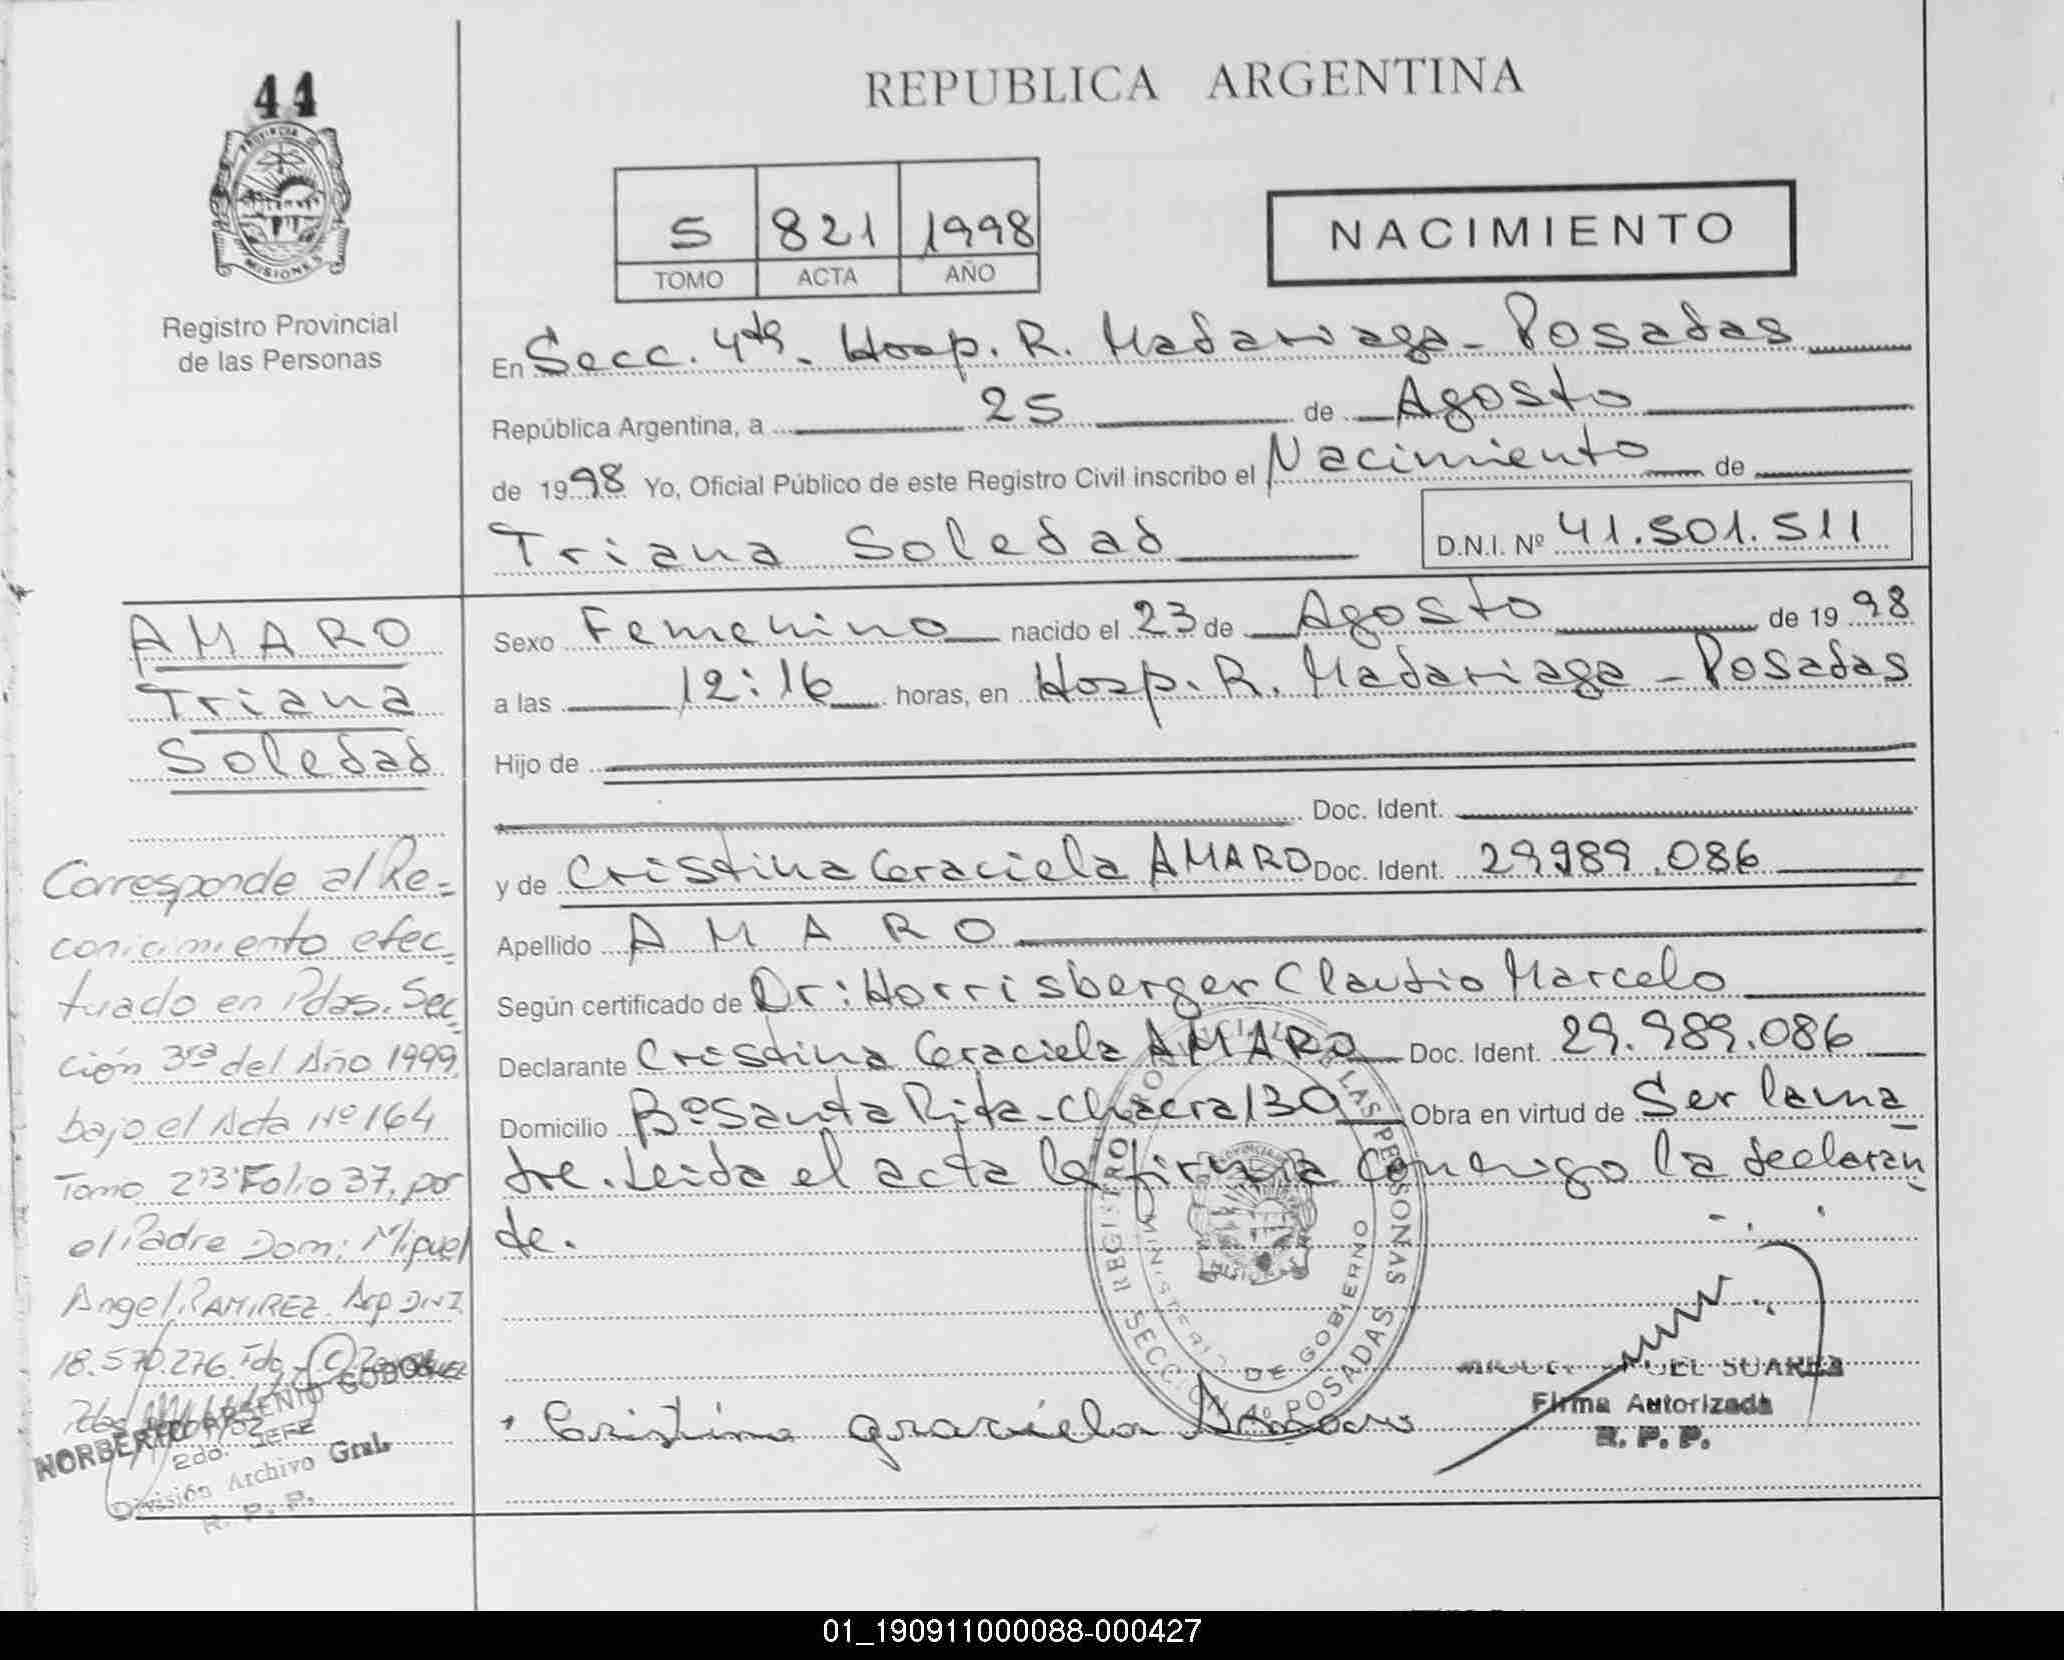 44
PROVINCIA DE
MISIONES
Registro Provincial
de las Personas
REPUBLICA ARGENTINA
5 821 1998
TOMO ACTA AÑO
NACIMIENTO
En Secc. 4ta. Hosp. R. Madariaga - Posadas
República Argentina, a 25 de Agosto
de 1998 Yo, Oficial Público de este Registro Civil inscribo el Nacimiento de
Triana Soledad D.N.I. Nº 41.501.511
AMARO
Triana
Soledad
Sexo Femenino nacido el 23 de Agosto de 1998
a las 12:16 horas, en Hosp. R. Madariaga - Posadas
Hijo de
Doc. Ident.
y de Cristina Graciela AMARO Doc. Ident. 29989.086
Apellido AMARO
Según certificado de Dr: Horrisberger Claudio Marcelo
Declarante Cristina Graciela AMARO Doc. Ident. 29.989.086
Domicilio Bº Santa Rita - Chacra 130 Obra en virtud de Ser la ma
dre. Leida el acta la firma conmigo la declaran
te.
Corresponde al Re=
conicimiento efec=
tuado en Pdas. Sec=
ción 3ra del Año 1999
bajo el Acta Nº 164
Tomo 2º3º Folio 37, por
el Padre Dom: Miguel
Angel RAMIREZ. Arg DNI
18.570.276. Fdo.
NORBERTO ARSENIO GODOY
2do. JEFE
División Archivo Gral.
R. P. P.
REGISTRO PROVINCIAL DE LAS PERSONAS
MINISTERIO DE GOBIERNO
SECC. 4º POSADAS
MISIONES
Cristina graciela Amaro
SUAREZ
Firma Autorizada
R. P. P.
01_190911000088-000427